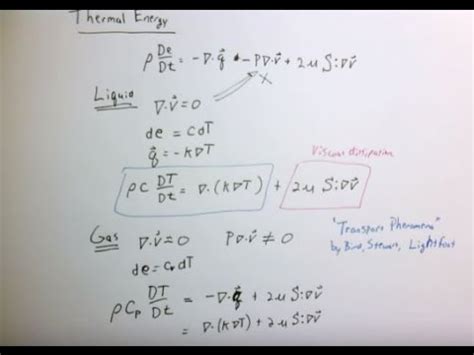 Thermal Energy
ρ De/Dt = -∇·q⃗ + -P∇·v⃗ + 2μ S:∇v⃗
Liquid ∇·v⃗ = 0 X
de = cdT
q⃗ = -k∇T
Viscous dissipation
ρc DT/Dt = ∇·(k∇T) + 2μ S:∇v⃗
"Transport Phenomena"
by Bird, Stewart, Lightfoot
Gas ∇·v⃗ ≈ 0 P∇·v⃗ ≠ 0
de = cᵥdT
ρCp DT/Dt = -∇·q⃗ + 2μ S:∇v⃗
= ∇·(k∇T) + 2μ S:∇v⃗